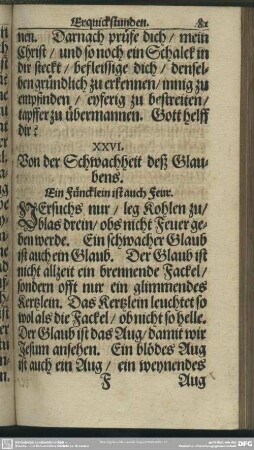 Erquickstunden. 81
nen. Darnach prüfe dich / mein
Christ / und so noch ein Schalck in
dir steckt / befleissige dich / densel-
ben gründlich zu erkennen / innig zu
empfinden / eyferig zu bestreiten /
tapffer zu übermannen. Gott helff
dir!
XXVI.
Von der Schwachheit deß Glau-
bens.
Ein Füncklein ist auch Feur.
VErsuchs nur / leg Kohlen zu /
blas drein / obs nicht Feuer ge-
ben werde. Ein schwacher Glaub
ist auch ein Glaub. Der Glaub ist
nicht allzeit ein brennende Fackel /
sondern offt nur ein glimmendes
Kertzlein. Das Kertzlein leuchtet so
wol als die Fackel / ob nicht so helle.
Der Glaub ist das Aug / damit wir
Jesum ansehen. Ein blödes Aug
ist auch ein Aug / ein weynendes
F Aug
DFG